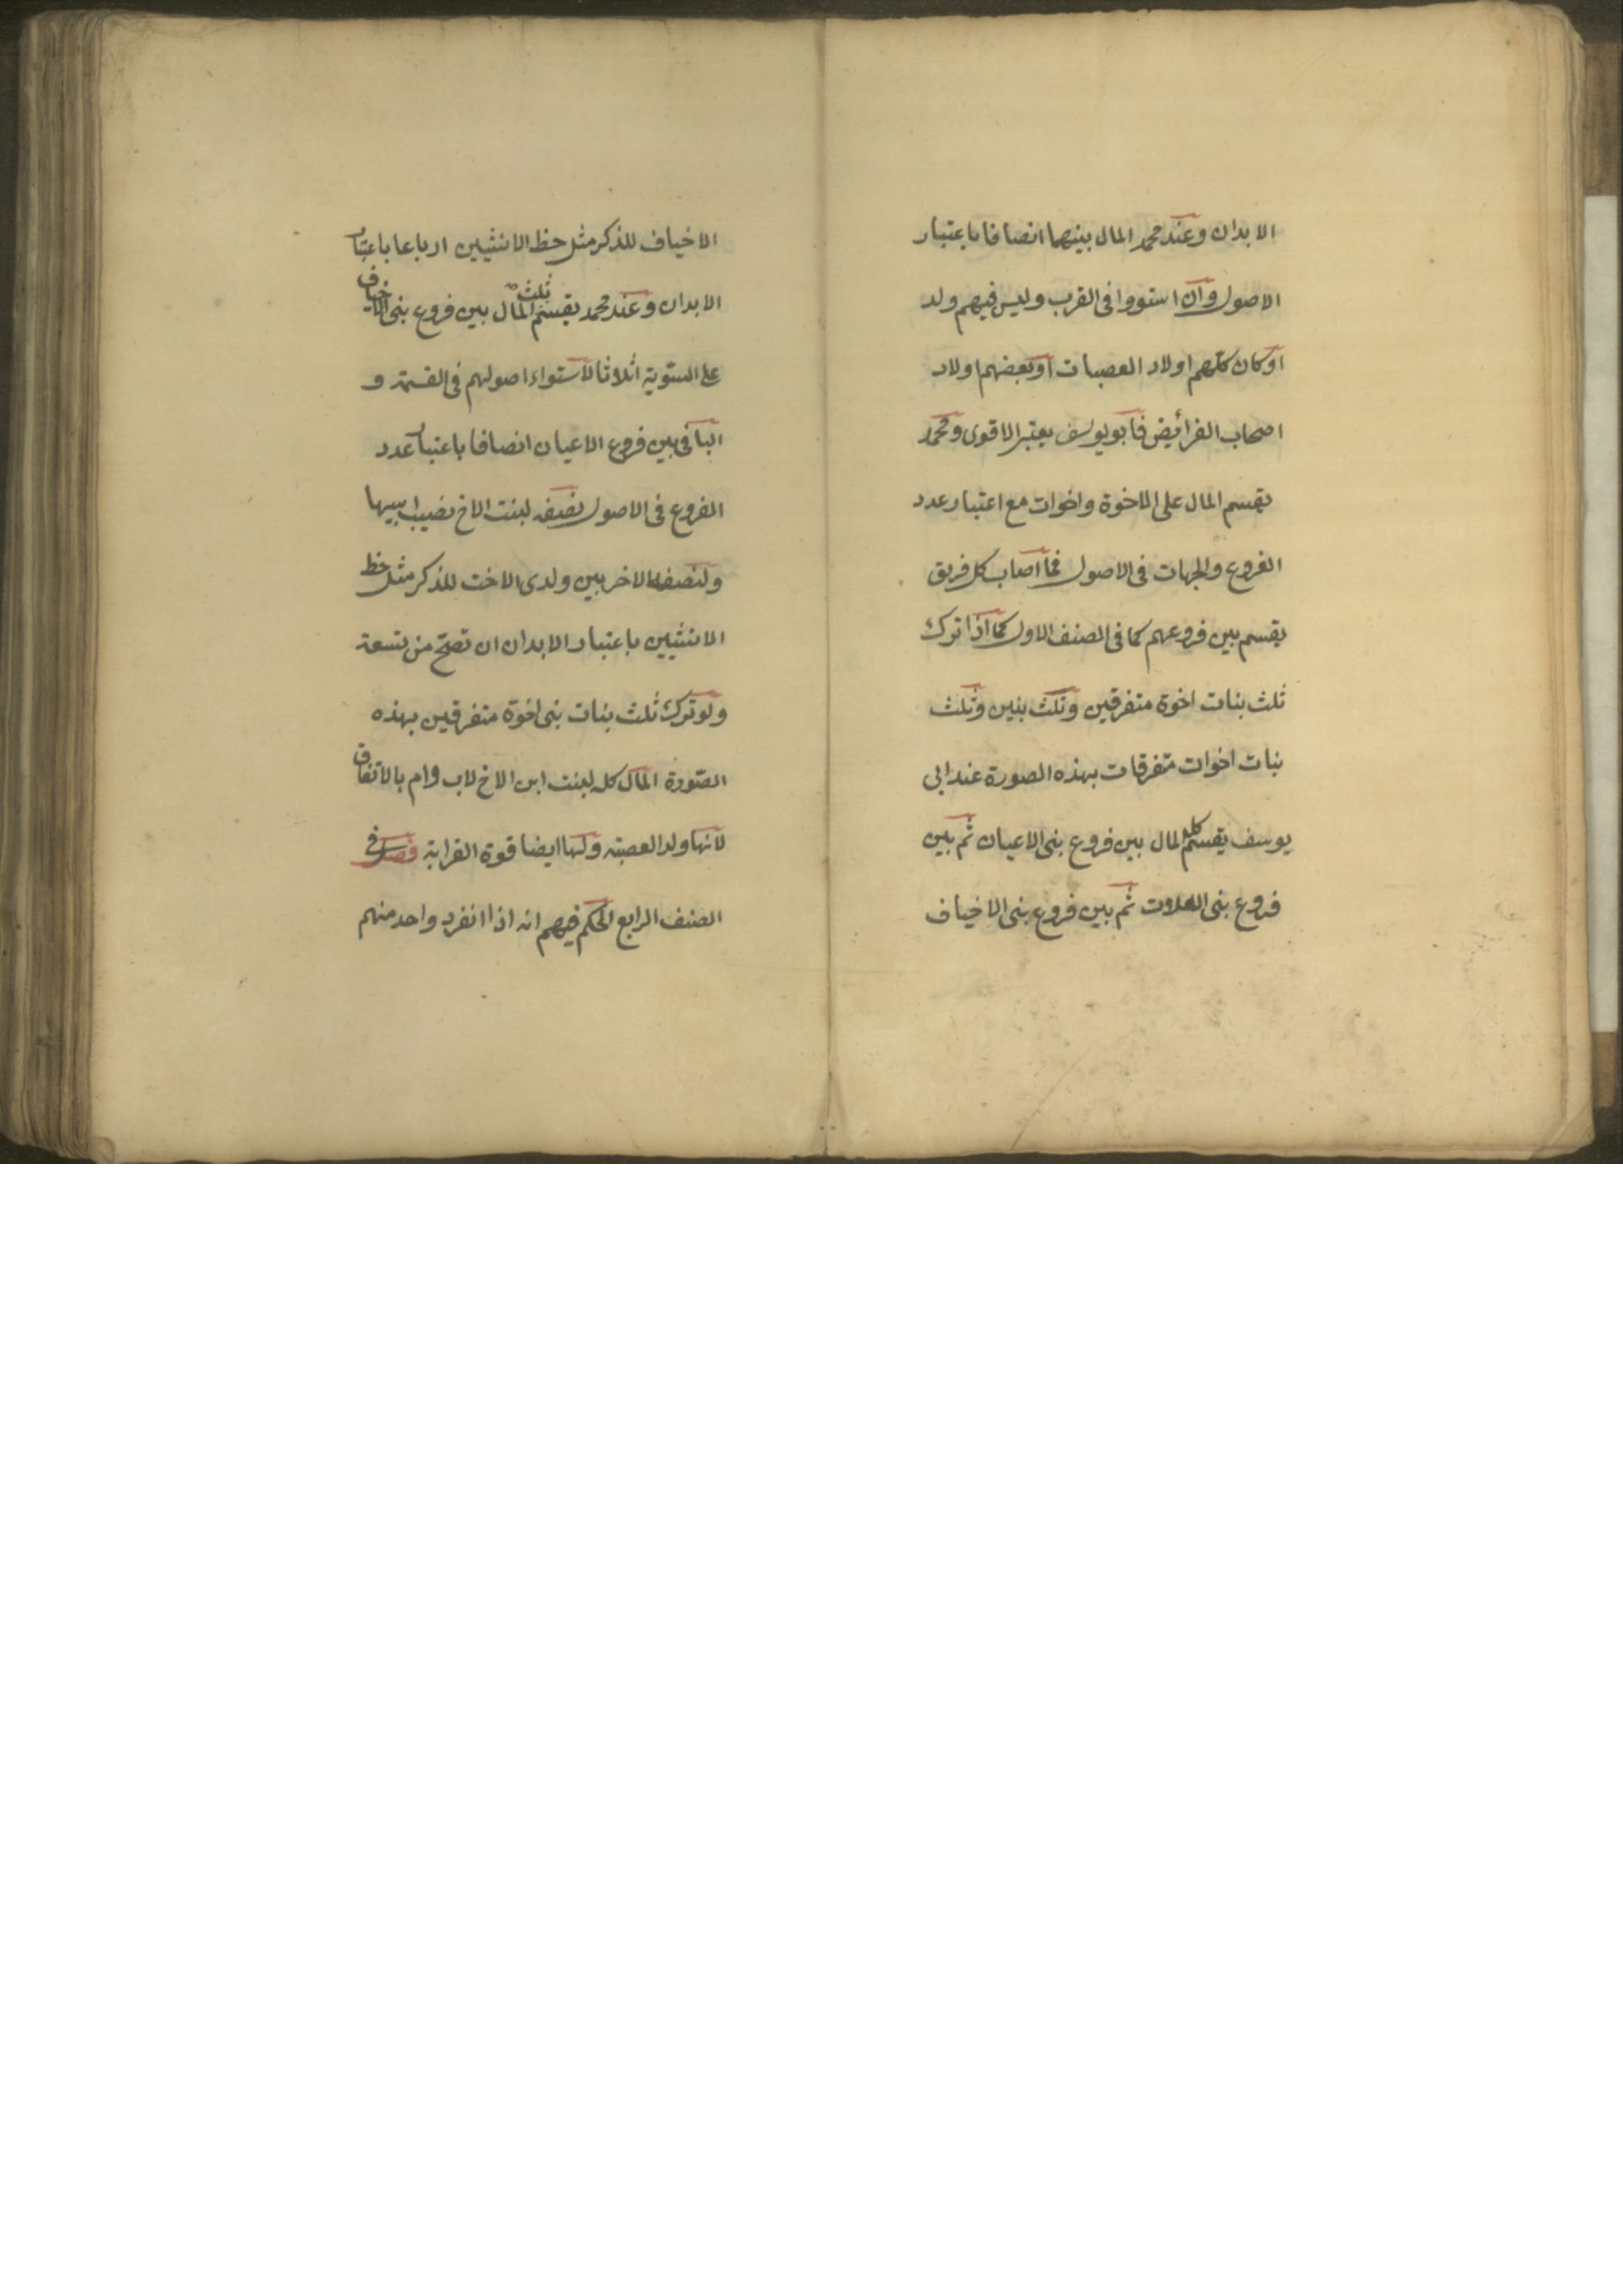 الابدان وعند محمد المال بينهما انصافا باعتبار
الاصول وان استووا فى القرب وليس فيهم ولد
او كان كلهم اولاد العصبات او بعضهم اولاد
اصحاب الفرائض فابو يوسف يعتبر الاقوى ومحمد
يقسم المال على الاخوة واخوات مع اعتبار عدد
الفروع والجهات فى الاصول فما اصاب كل فريق
يقسم بين فروعهم كما فى الصنف الاول كما اذا ترك
ثلث بنات اخوة متفرقين وثلث بنين وثلث
بنات اخوات متفرقات بهذه الصورة عند ابى
يوسف يقسم كل المال بين فروع بنى الاعيان ثم بين
فروع بنى العلات ثم بين فروع بنى الاخياف
الاخياف للذكر مثل حظ الانثيين ارباعا باعتبار
الابدان وعند محمد يقسم ثلث المال بين فروع بنى الاخياف
على السّوية اثلاثا لاستواء اصولهم فى القسمة و
الباقى بين فروع الاعيان انصافا باعتبار عدد
الفروع فى الاصول نصفه لبنت الاخ نصيب ابيها
والنصف الاخر بين ولدى الاخت للذكر مثل حظ
الانثيين باعتبار الابدان ان تصحّ من تسعة
ولو ترك ثلث بنات بنى اخوة متفرقين بهذه
الصّورة المال كله لبنت ابن الاخ لاب وام بالاتفاق
لانها ولد العصبة ولها ايضا قوة القرابة فصل فى
الصنف الرابع الحكم فيهم انه اذا انفرد واحد منهم